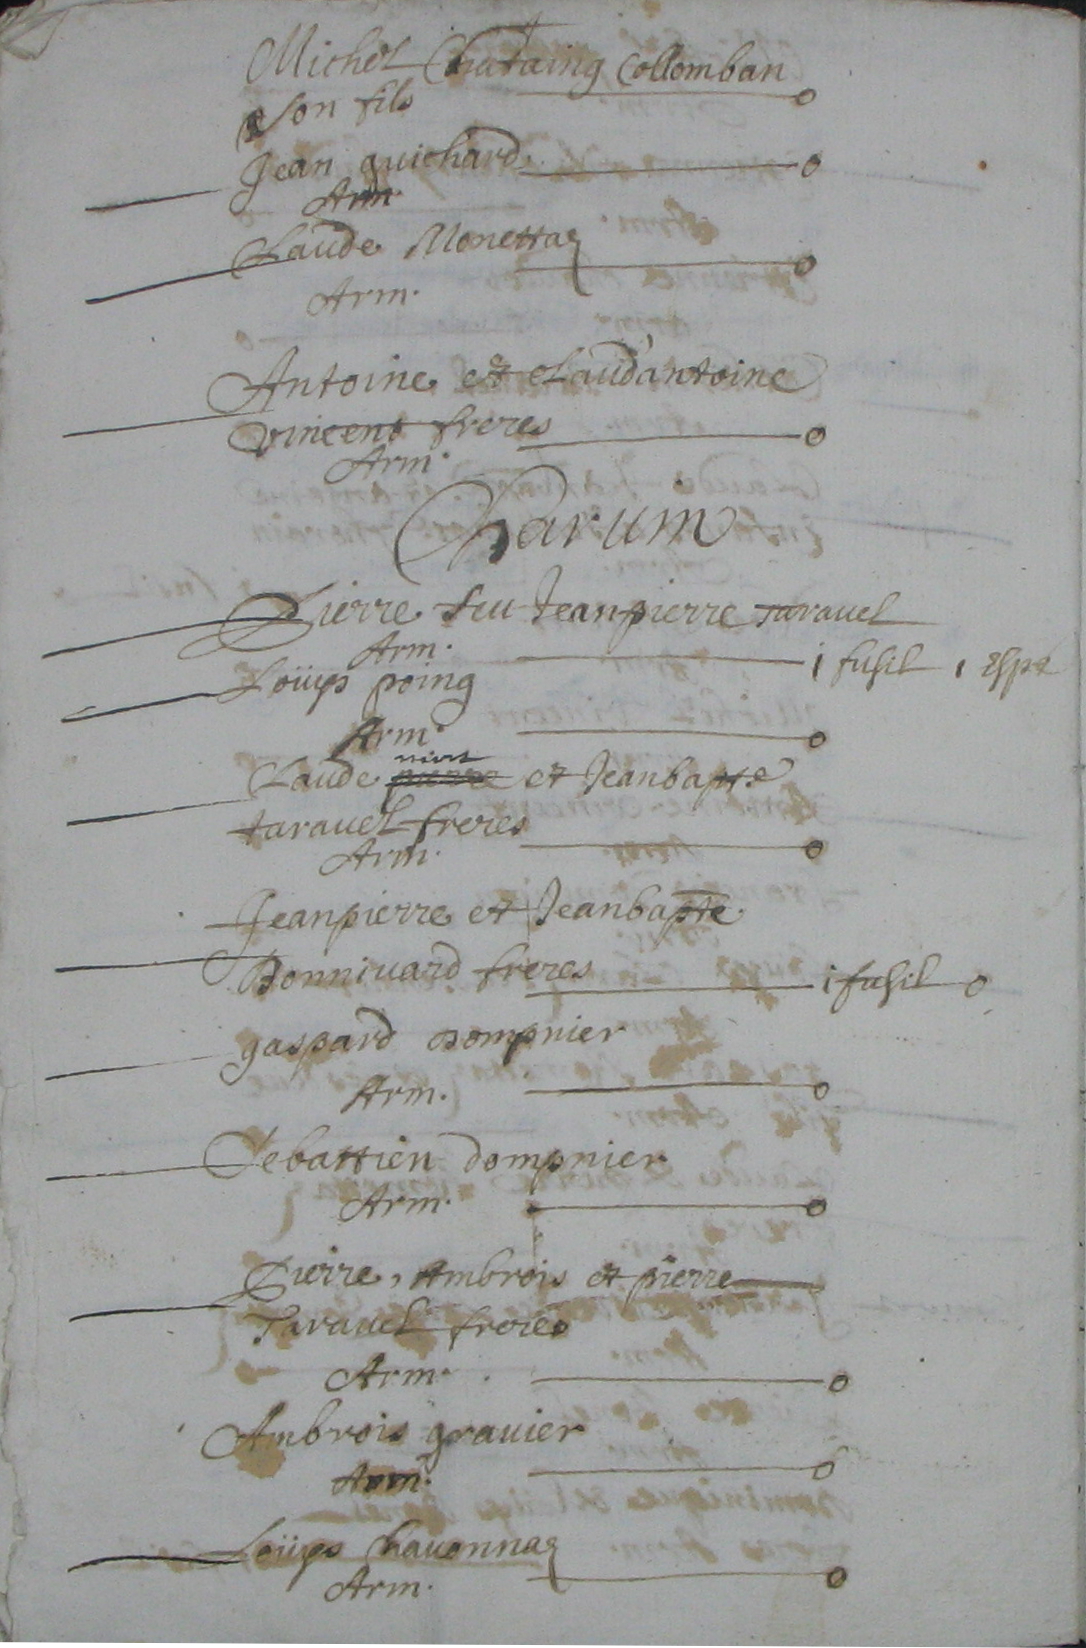 Michel Chataing Collomban
son fils o
Jean guichard o
Arm.
Claude Monettaz o
Arm.
Antoine et Claud'antoine
vincent freres o
Arm.
Charum
Pierre feu Jeanpierre taravel
Arm. i fusil i espé
Loüys poing
Arm. o
mort
Claude pierre et Jeanbapte
taravel freres o
Arm.
Jeanpierre et Jeanbapte
Bonnivard freres i fusil o
gaspard dompnier
Arm. o
Sebastien dompnier
Arm. o
Pierre, Ambrois et pierre
Taravel freres
Arm. o
Ambrois gravier
Arm. o
Loüys Chavonnaz
Arm. o